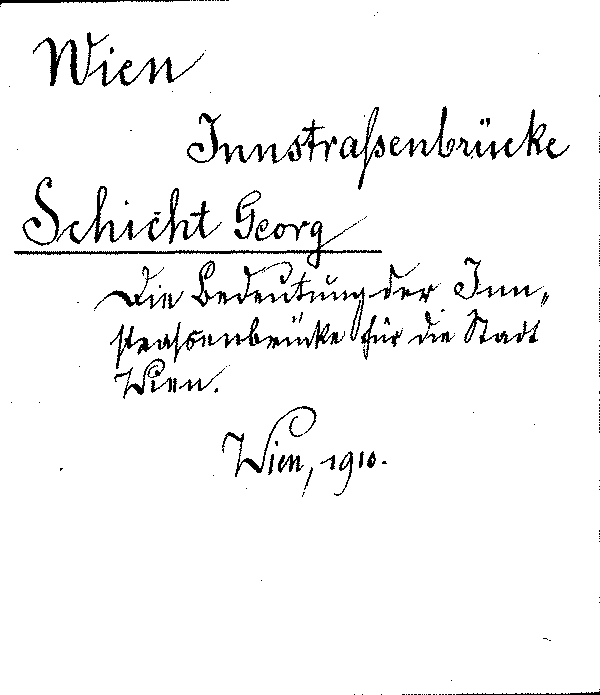 Wien
Innstraßenbrücke
Schicht Georg
Die Bedeutung der Inn-
strassenbrücke für die Stadt
Wien.
Wien, 1910.